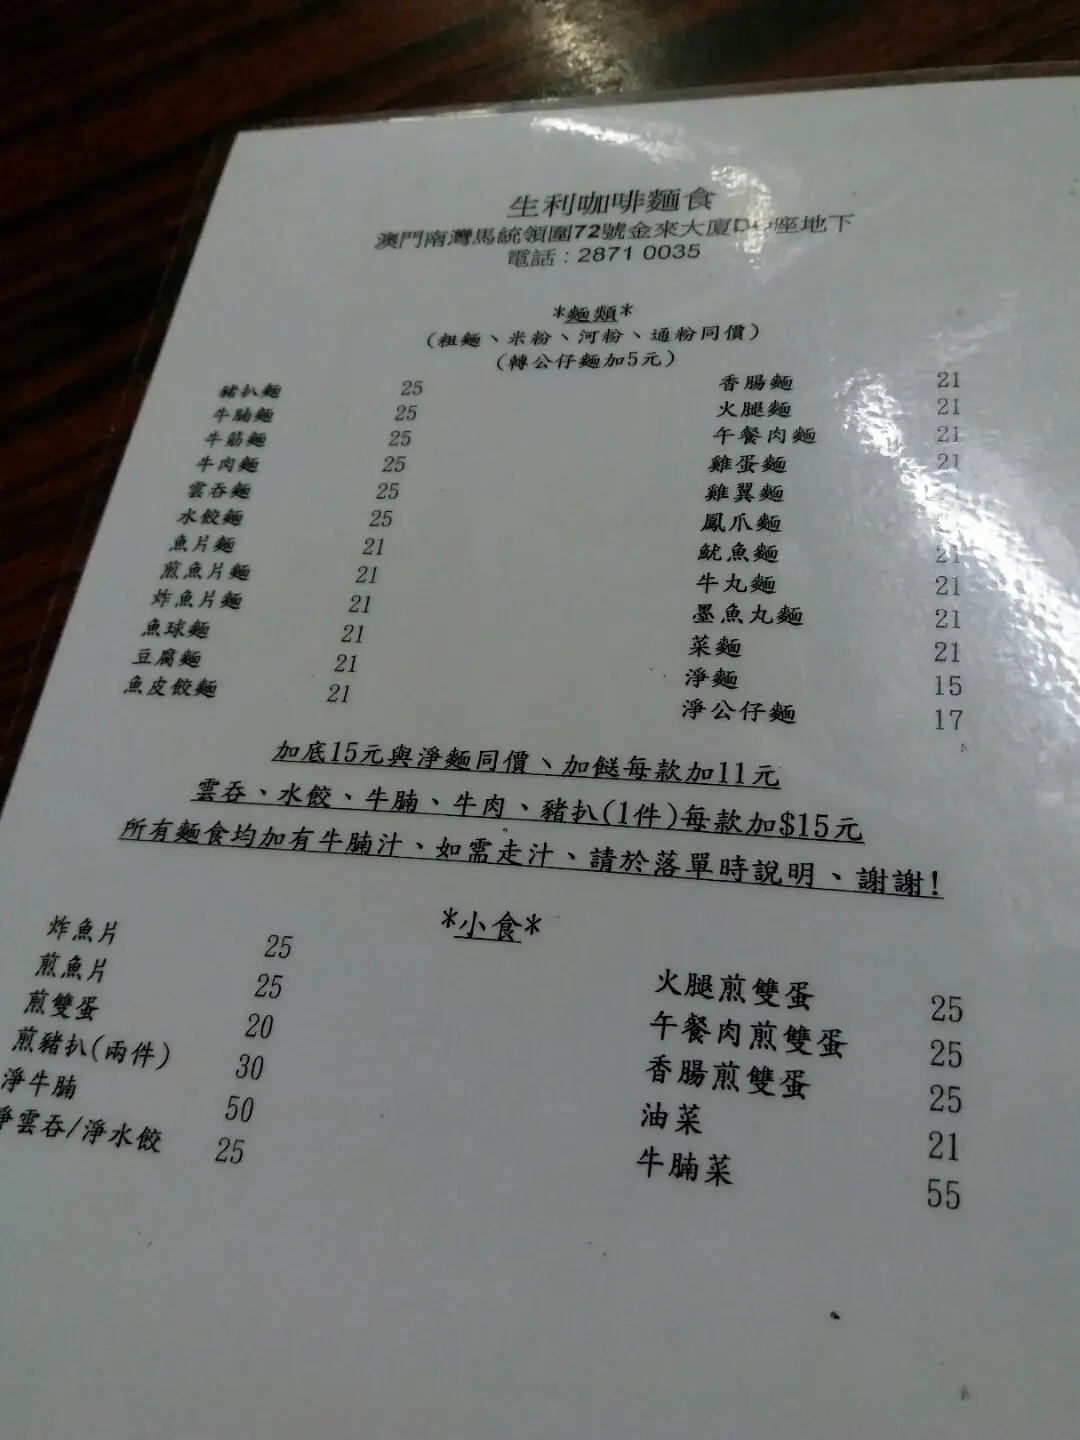 生利咖啡麵食
澳門南灣馬統領圍72號金來大廈座地下
電話：2871 0035
*麵類*
（粗麵、米粉、河粉、通粉同價）
（轉公仔麵加5元）
豬扒麵 25
牛腩麵 25
牛筋麵 25
牛肉麵 25
雲吞麵 25
水餃麵 25
魚片麵 21
煎魚片麵 21
炸魚片麵 21
魚球麵 21
豆腐麵 21
魚皮餃麵 21
香腸麵 21
火腿麵 21
午餐肉麵 21
雞蛋麵 21
雞翼麵
鳳爪麵
魷魚麵 21
牛丸麵 21
墨魚丸麵 21
菜麵 21
淨麵 15
淨公仔麵 17
加底15元與淨麵同價、加餸每款加11元
雲吞、水餃、牛腩、牛肉、豬扒(1件)每款加$15元
所有麵食均加有牛腩汁、如需走汁、請於落單時說明、謝謝!
*小食*
炸魚片 25
煎魚片 25
煎雙蛋 20
煎豬扒(兩件) 30
淨牛腩 50
淨雲吞/淨水餃 25
火腿煎雙蛋 25
午餐肉煎雙蛋 25
香腸煎雙蛋 25
油菜 21
牛腩菜 55